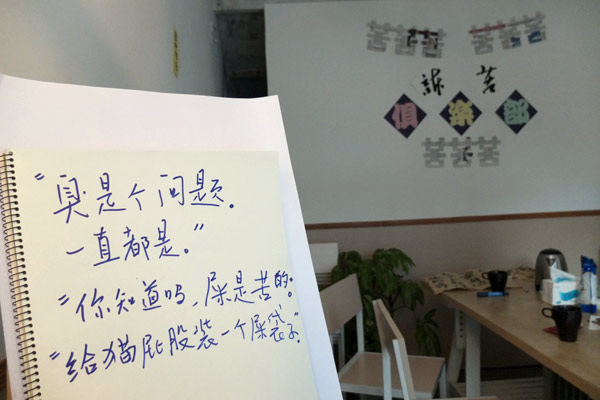 "臭是个问题.
一直都是."
"你知道吗,屎是苦的."
"给猫屁股装一个屎袋子."
訴苦
俱樂部
苦苦苦